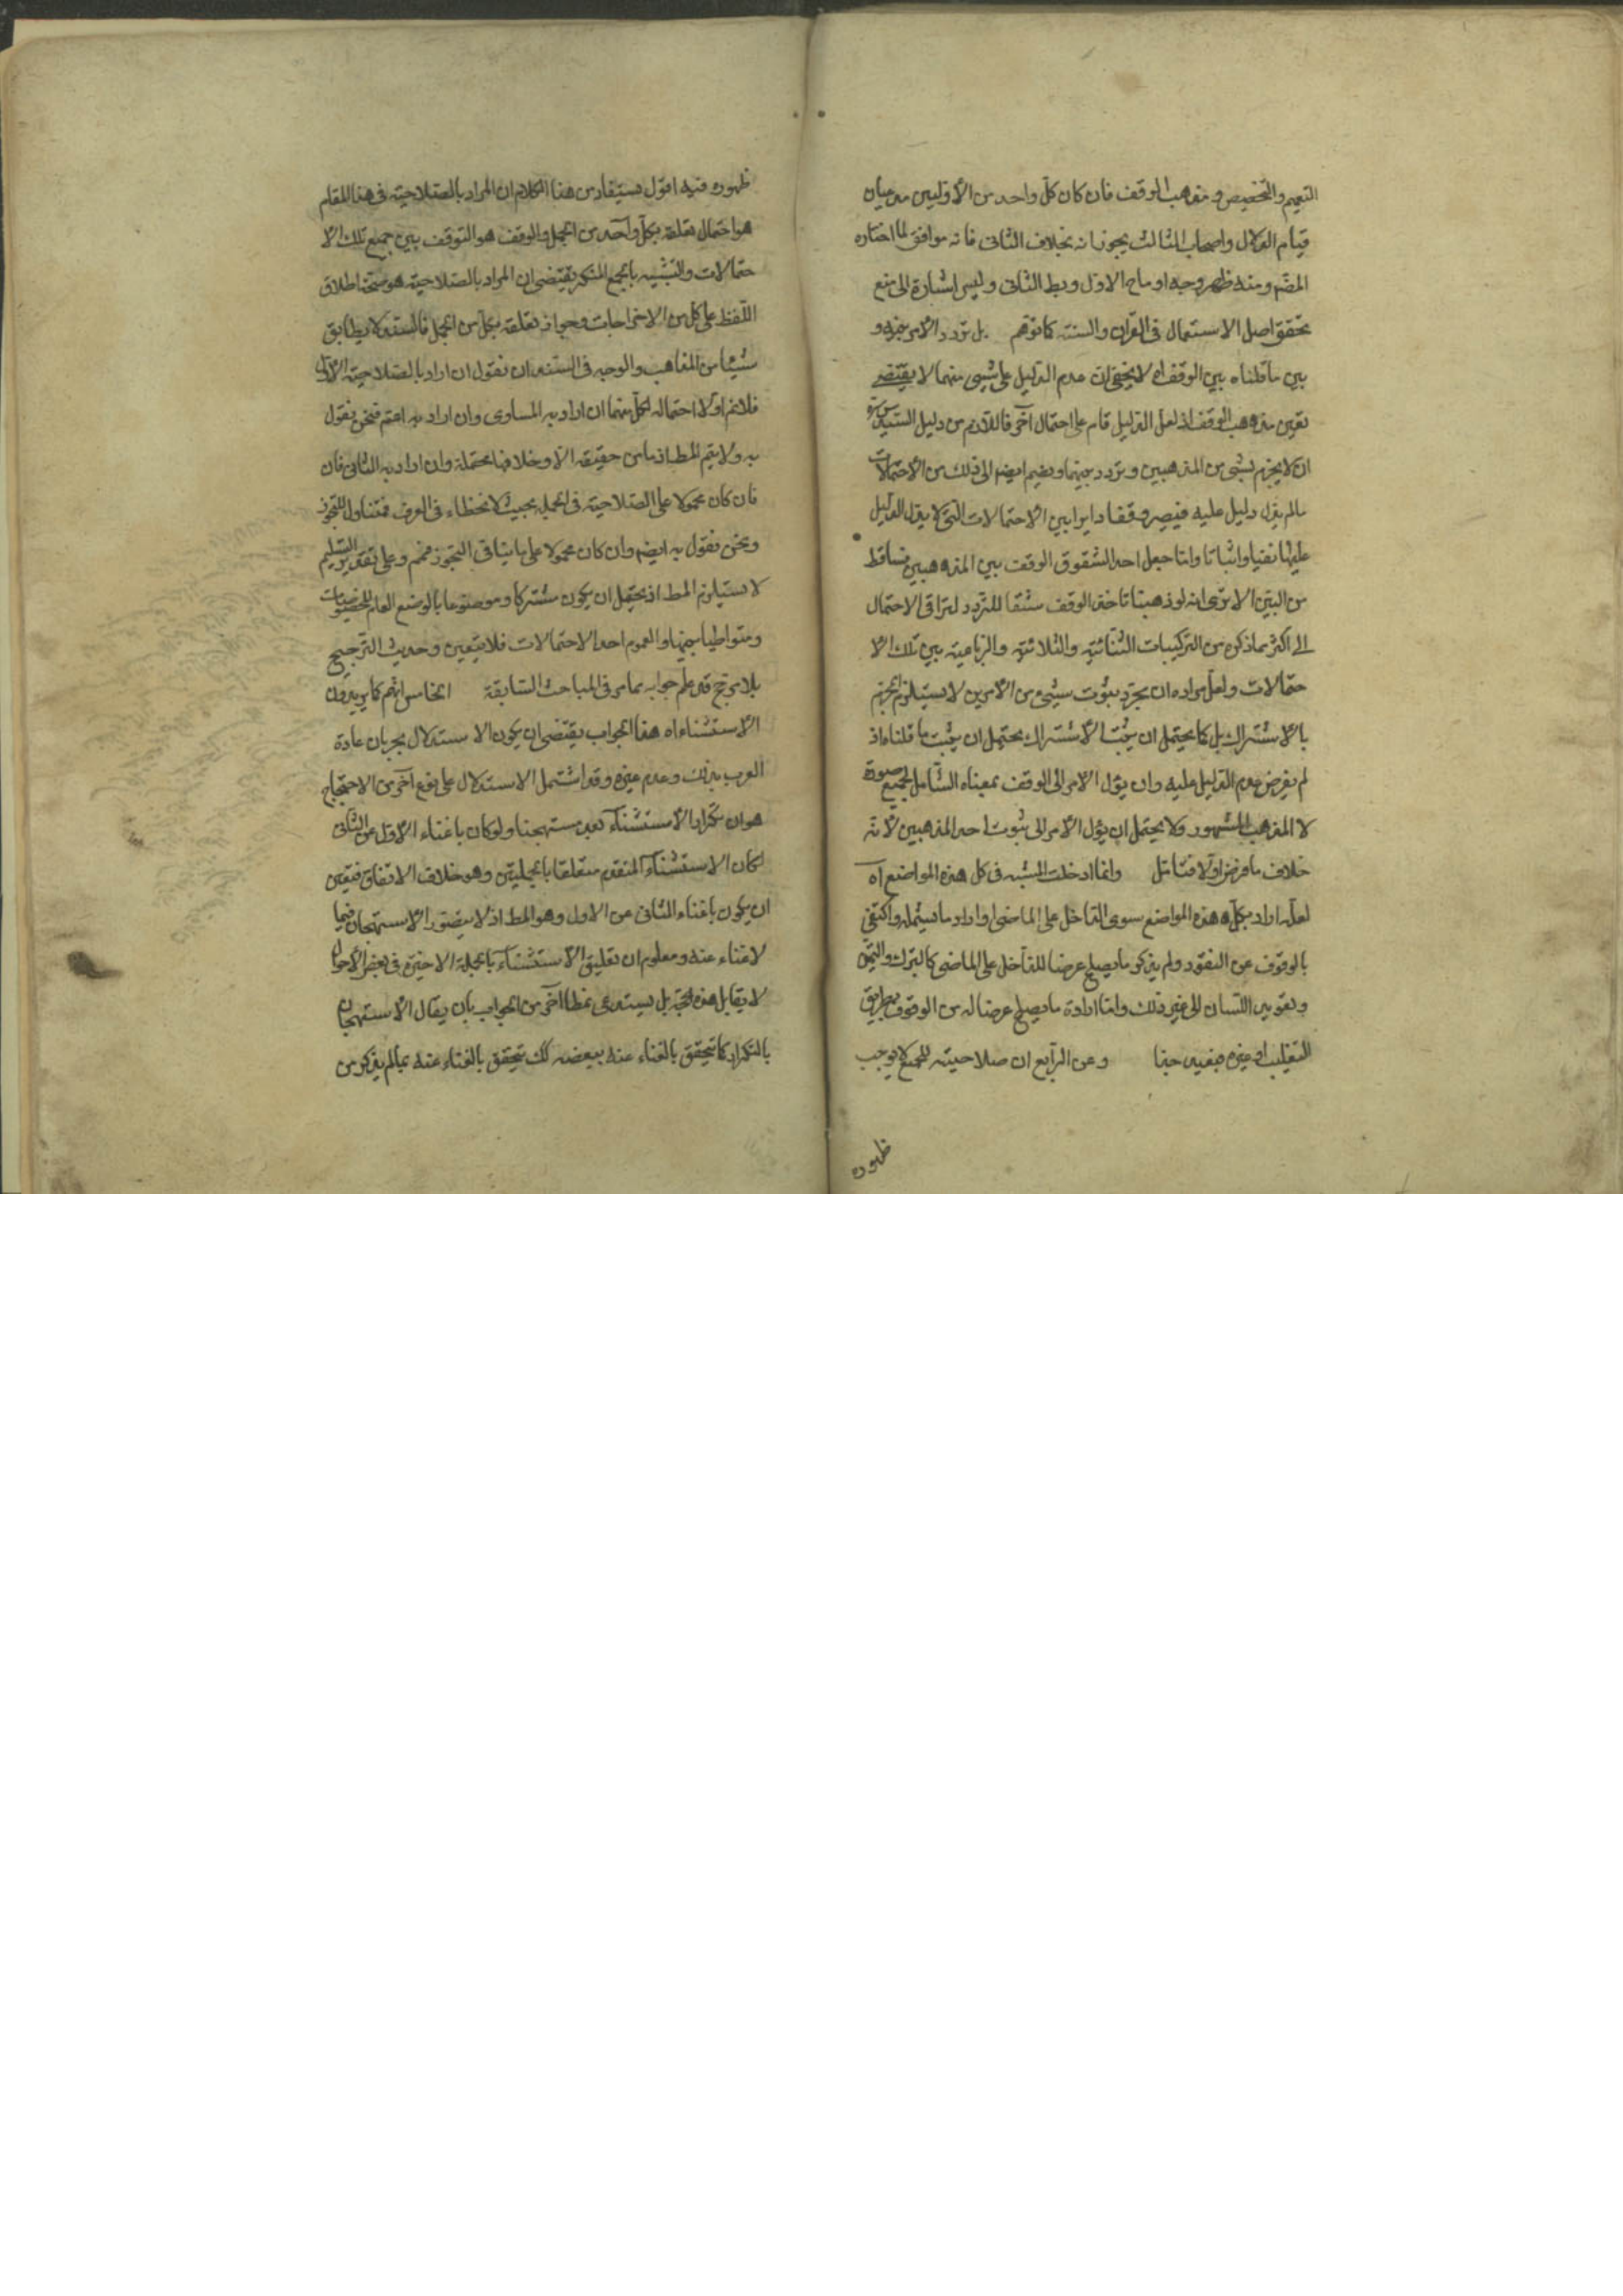 التعميم والتخصيص ومذهب الوقف فان كان كل واحد من الأولين مدعيان
قيام الدلال واصحاب الثالث يجوزانه بخلاف الثانى فانه موافق لما اختاره
المصّ ومنه ظهر وجه اوماح الاول وبط الثانى وليس اشارة الى منع
تحقق اصل الاستعمال فى القرآن والسنة كما توهم بل تردد الأمر بينه و
بين ما قلناه بين الوقف اه لا يخفى ان عدم الدليل على شيئ منهما لا يقتضى
تعين مذهب الوقف اذ لعل الدليل قام على احتمال آخر فاللازم من دليل السيد
ان لا يجزم بشئ من المذهبين وتردد بينهما ويضم ايضم الى ذلك من الأحتمالات
مالم يدل دليل عليه فيصير وقفا دايرا بين الأحتمالات التى لا يدل الدليل
عليها نفيا واثباتا واما جعل احد الشقوق الوقف بين المذهبين فساقط
من البين الا ترى انه لو ذهبنا تاخذ الوقف شقا للتردد لتراقى الاحتمال
الى اكثر مما ذكره من التركيبات الثنائية والثلاثية والرباعية بين تلك الأ
حتمالات ولعل مراده ان مجرد ثبوت شيئ من الأمرين لا يستلزم الجزم
بالأشتراك بل كما يحتمل ان يثبت الأشتراك يحتمل ان يثبت ما قلناه اذ
لم يفرض عدم الدليل عليه وان يؤل الأمر الى الوقف بمعناه الشامل لجميع صوره
لا المذهب المشهور ولا يحتمل ان يؤل الأمر الى ثبوت احد المذهبين لأنه
خلاف ما فرض اولا فتامل وانما ادخلت الشبه فى كل هذه المواضع آه
لعله اراد بكل هذه المواضع سوى الداخل على الماضى او اراد ما يشمله واكتفى
بالوقوف عن القعود ولم يذكر ما يصلح عرضا للداخل على الماضى كالترك والتيمن
وتعويد اللسان الى غير ذلك واما ارادة ما يصلح عرضا له من الوقوف بطريق
التغليب او غيره فبعيد جدا وعن الرابع ان صلاحيته للجميع لا يوجب
ظهوره
ظهوره فيه اقول يستفاد من هذا الكلام ان المراد بالصلاحية فى هذا المقام
هو احتمال تعلقه بكل واحد من الجمل والوقف هو التوقف بين جميع تلك الأ
حتمالات والتشبيه بالجمع المنكر يقتضى ان المراد بالصلاحية هو صحة اطلاق
اللفظ على كل من الاخراجات وجواز تعلقه بكل من الجمل فالسند لا يطابق
شيئا من المذاهب والوجه فى السند ان نقول ان اراد بالصلاحية الأول
فلانم اولا احتماله لكل منهما ان اراد به المساوى وان اراد به اعم فنحن نقول
به ولا يتم المط اذ ما من حقيقة الا وخلافها محتملة وان اراد به الثانى فان
فان كان محمولا على الصلاحية فى الجملة بحيث لا نخطاء فى العرف فمتناول للتجوز
ونحن نقول به ايضم وان كان محمولا على ما ينافى التجوز فمم وعلى تقدير التسليم
لا يستلزم المط اذ يحتمل ان يكون مشتركا وموضوعا بالوضع العام للخصوصيات
ومتواطيا بينها والعموم احد الاحتمالات فلا يتعين وحديث الترجيح
بلا مرجح قد علم جوابه مما مر فى المباحث السابقة الخامس انهم كما يريدون
الأستثناء اه هذا الجواب يقتضى ان يكون الا ستدلال بجريان عادة
العرب بذلك وعدم غيره وقد اشتمل الاستدلال على نوع آخر من الاحتجاج
هو ان تكرار الأستثناء يعد مستهجنا ولو كان باغناء الأول عن الثانى
لكان الاستثناء المتقدم متعلقا بالجملتين وهو خلاف الاتفاق فتعين
ان يكون باغناء الثانى عن الاول وهو المط اذ لا يتصور الأستهجان فيما
لا غناء عنه ومعلوم ان تعليق الأستثناء بالجملة الاخيرة فى بعض الأحوال
لا يقابل هذه الحجة بل يستدعى نمطا آخر من الجواب بان يقال الأستهجان
بالتكرار كما يتحقق بالغناء عنه ببعضه كك يتحقق بالغناء عنه بما لم يذكر من